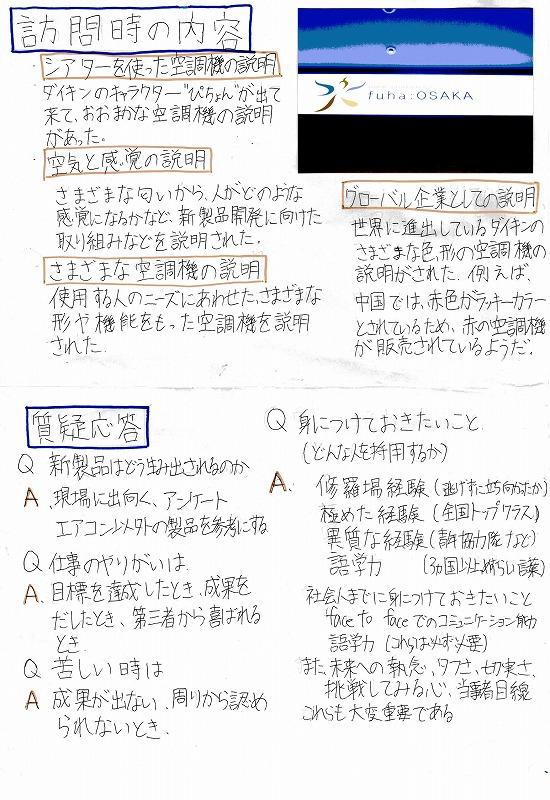 訪問時の内容
・シアターを使った空調機の説明
ダイキンのキャラクター"ぴちょん"が出て
来て、おおまかな空調機の説明
があった。
空気と感覚の説明
さまざまな匂いから、人がどのような
感覚になるかなど、新製品開発に向けた
取り組みなどを説明された。
さまざまな空調機の説明
使用する人のニーズにあわせた、さまざまな
形や機能をもった空調機を説明
された.
fuha:OSAKA
グローバル企業としての説明
世界に進出しているダイキンの
さまざまな色、形の空調機の
説明がされた. 例えば、
中国では、赤色がラッキーカラー
とされているため、赤の空調機
が販売されているようだ.
質疑応答
Q 新製品はどう生み出されるのか
A、現場に出向く、アンケート
エアコン以外の製品を参考にする
Q 仕事のやりがいは
A. 目標を達成したとき、成果を
だしたとき、第三者から喜ばれる
とき.
Q 苦しい時は
A 成果が出ない、周りから認め
られないとき.
Q 身につけておきたいこと
(どんな人を採用するか)
A. 修羅場経験(逃げずに立ち向かったか)
極めた経験(全国トップクラス)
異質な経験(青年協力隊など)
語学力 (3カ国以上めずらしい言葉)
社会人までに身につけておきたいこと
face to faceでのコミュニケーション能力
語学力(これは必ず必要)
また、未来への執念、タフさ、切実さ、
挑戦してみる心、当事者目線
これらも大変重要である